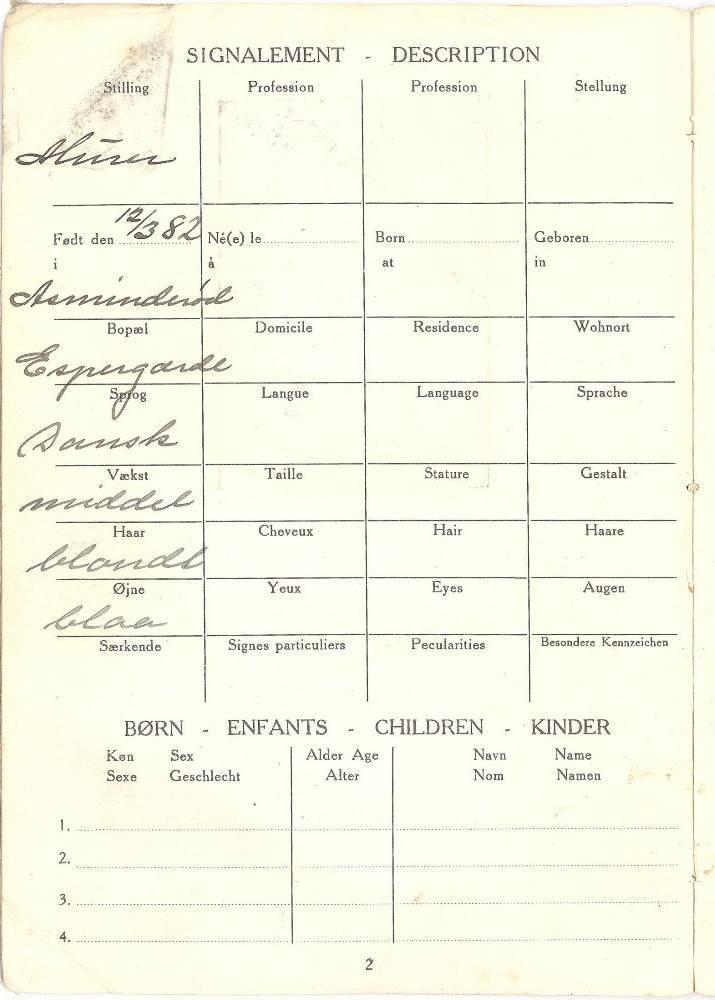 SIGNALEMENT - DESCRIPTION
Stilling Profession Profession Stellung
Murer
Født den 12/3 82 Né(e) le Born Geboren
i à at in
Asminderød
Bopæl Domicile Residence Wohnort
Espergærde
Sprog Langue Language Sprache
Dansk
Vækst Taille Stature Gestalt
middel
Haar Cheveux Hair Haare
blondt
Øjne Yeux Eyes Augen
blaa
Særkende Signes particuliers Pecularities Besondere Kennzeichen
BØRN - ENFANTS - CHILDREN - KINDER
Køn Sex Alder Age Navn Name
Sexe Geschlecht Alter Nom Namen
1.
2.
3.
4.
2